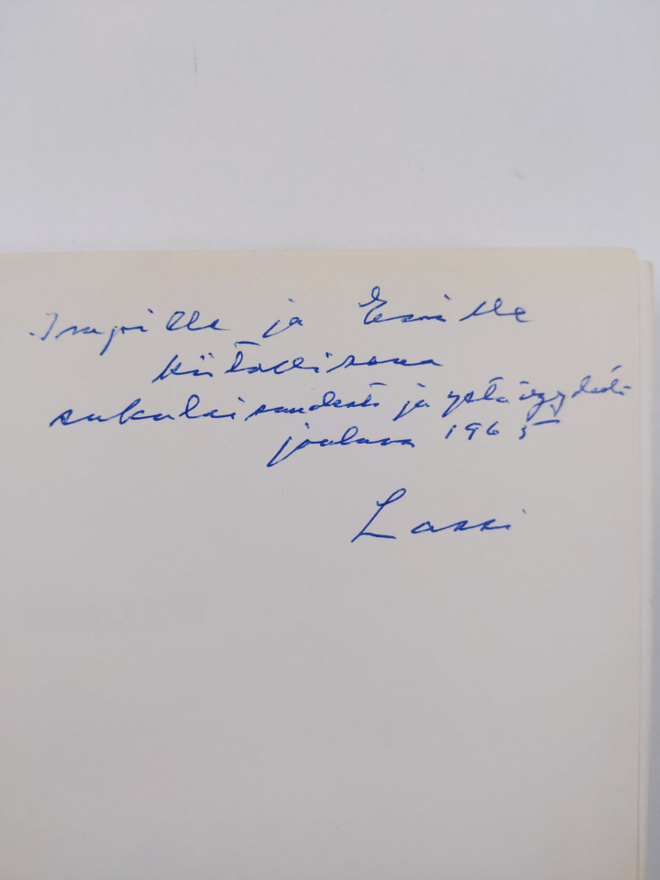 Impille ja Einille
kiitollisena
sukulaisuudesta ja ystävyydestä
jouluna 1965
Lassi